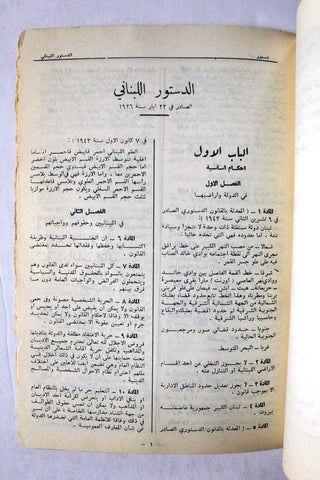 دستور
الدستور اللبناني
الدستور اللبناني
الصادر في ٢٣ ايار سنة ١٩٢٦
الباب الاول
احكام اساسية
الفصل الاول
في الدولة واراضيها
المادة ١ – المعدلة بالقانون الدستوري الصادر
في ٩ تشرين الثاني سنة ١٩٤٣ :
لبنان دولة مستقلة ذات وحدة لا تتجزأ وسيادة
تامة . اما حدوده فهي التي تحده حاليا :
شمالا – من مصب النهر الكبير على خط يرافق
مجرى النهر الى نقطة اجتماعه بوادي خالد الصاب
فيه على علو جسر القمر .
شرقا – خط القمة الفاصل بين وادي خالد
ووادي نهر العاصي ( اورنت ) مارا بقرى معيصرة
– حربعاته – هيت – ابش – فيصان على علو قريتي
برينا ومطربا وهذا الخط تابع حدود قضاء بعلبك
الشمالية من الجهة الشمالية الشرقية والجهة
الجنوبية الشرقية ثم حدود اقضية بعلبك والبقاع
وحاصبيا وراشيا الشرقية .
جنوبا – حدود قضائي صور ومرجعيون
الجنوبية الحالية .
غربا – البحر المتوسط
المادة ٢ – لا يجوز التخلي عن احد اقسام
الاراضي اللبنانية او التنازل عنه .
المادة ٣ – لا يجوز تعديل حدود المناطق الادارية
الا بموجب قانون .
المادة ٤ – لبنان الكبير جمهورية عاصمته
بيروت .
المادة ٥ – المعدلة بالقانون الدستوري الصادر
في ٧ كانون الاول سنة ١٩٤٣ :
العلم اللبناني احمر فابيض فاحمر اقساما
افقية تتوسط الارزة القسم الابيض بلون اخضر
اما حجم القسم الابيض فيساوي حجم القسمين
الاحمرين معا . واما الارزة فهي في الوسط
رأسها يلامس القسم الاحمر العلوي وقاعدتها تلامس
القسم الاحمر السفلي ويكون حجم الارزة موازيا لثلث
حجم القسم الابيض .
الفصل الثاني
في اللبنانيين وحقوقهم وواجباتهم
المادة ٦ – ان الجنسية اللبنانية وطريقة
اكتسابها وحفظها وفقدانها تحدد بمقتضى
القانون .
المادة ٧ – كل اللبنانيين سواء لدى القانون وهم
يتمتعون بالسواء بالحقوق المدنية والسياسية
ويتحملون الفرائض والواجبات العامة دونما
فرق بينهم .
المادة ٨ – الحرية الشخصية مصونة وفي حمى
القانون ولا يمكن ان يقبض على احد او يحبس
او يوقف الا وفاقا لاحكام القانون ولا يمكن تحديد
جرم او تعيين عقوبة الا بمقتضى القانون .
المادة ٩ – حرية الاعتقاد مطلقة والدولة بتأديتها
فروض الاجلال لله تعالى تحترم جميع الاديان
والمذاهب وتكفل حرية اقامة الشعائر الدينية
تحت حمايتها على ان لا يكون في ذلك اخلال في
النظام العام وهي تضمن ايضا للاهلين على اختلاف
مللهم احترام نظام الاحوال الشخصية والمصالح
الدينية .
المادة ١٠ – التعليم حر ما لم يخل بالنظام العام
او ينافي الاداب او يتعرض لكرامة احد الاديان
او المذاهب ولا يمكن ان تمس حقوق الطوائف
من جهة انشاء مدارسها الخاصة ، على ان تسير في
ذلك وفاقا للانظمة العامة التي تصدرها الدولة
في شأن المعارف العمومية .
– ١ –